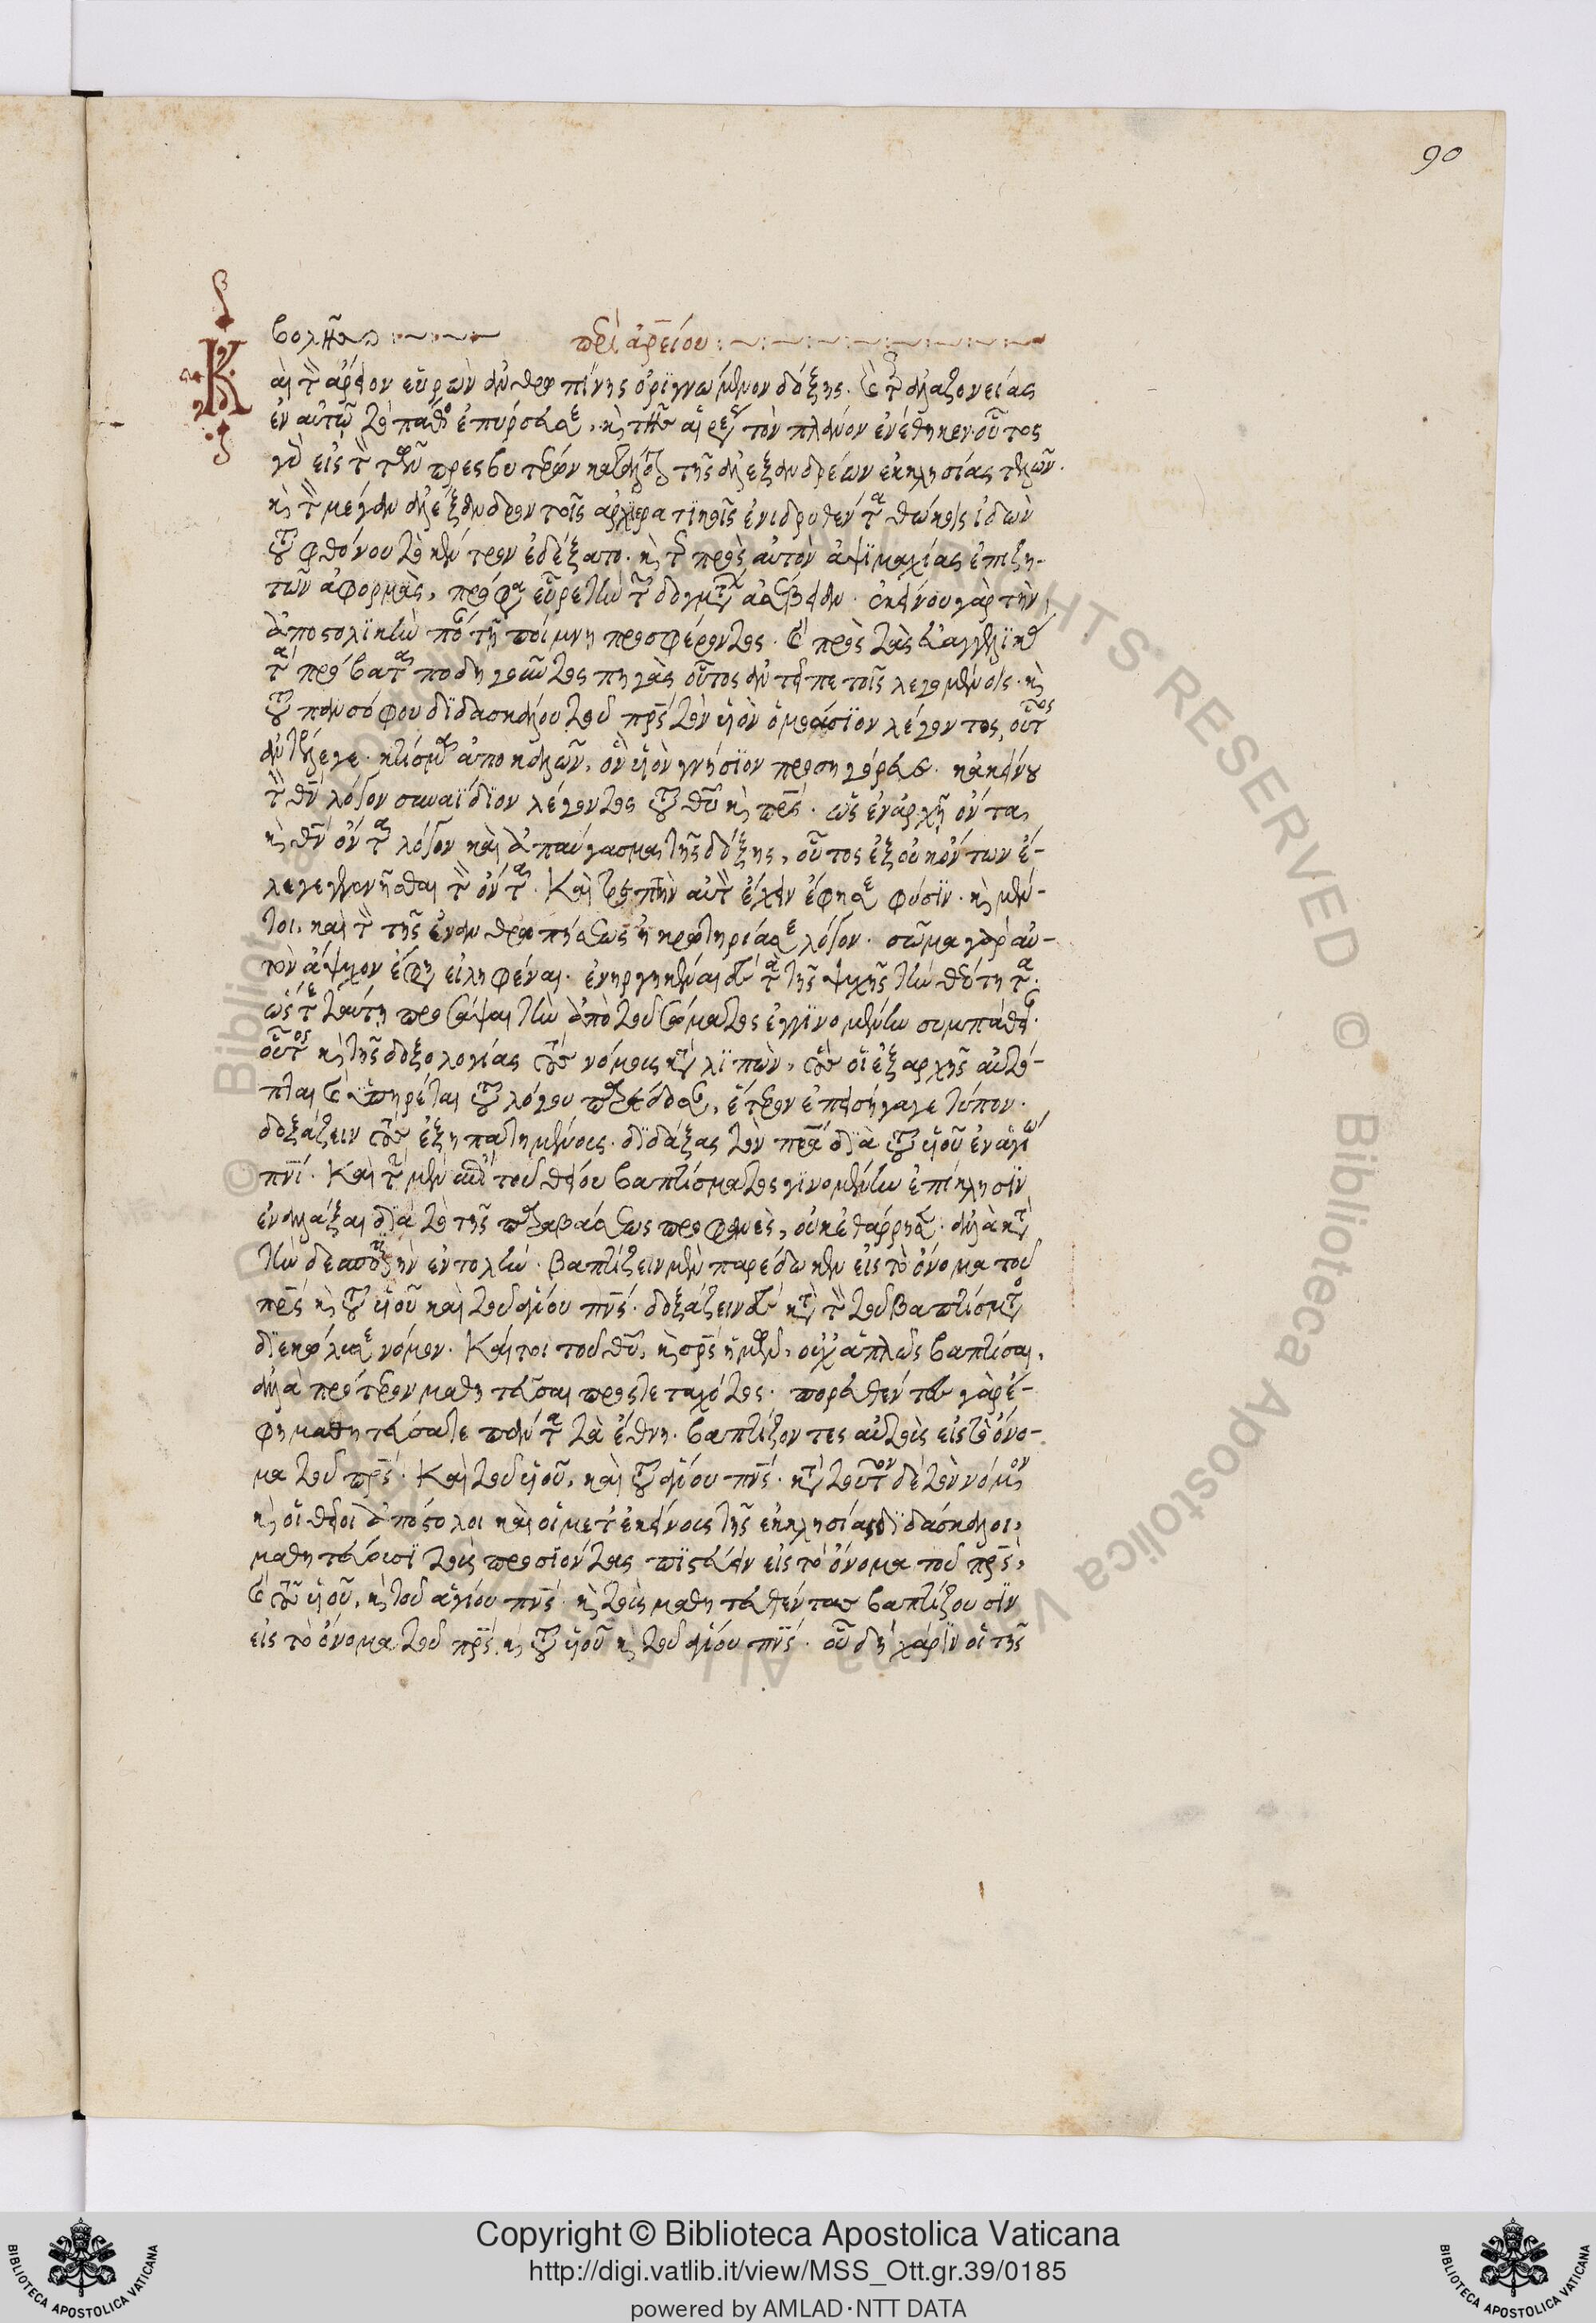 90
βολὴν περὶ ἀρείου
Καὶ τὸν ἄρειον εὑρὼν ἀνθρωπίνης ὀριγνώμενον δόξης. καὶ τῆς ἀλαζονείας
ἐν αὐτῶ τὸ πάθος ἐπύρσευσε, καὶ τῶν αἱρέσεων τὸν πλάνον ἐνέθηκεν οὗτος
γὰρ εἰς τὸν τῶν πρεσβυτέρων κατάλογον τῆς ἀλεξανδρέων ἐκκλησίας τελῶν.
καὶ τὸν μέγαν ἀλέξανδρον τοῖς ἀρχιερατικοῖς ἐνιδρυθέντα θώκοις ἰδὼν
τοῦ φθόνου τὸ κέντρον ἐδέξατο. καὶ τῆς πρὸς αὐτὸν ἀψιμαχίας ἐπιζη-
τῶν ἀφορμὰς, πρόφασιν εὗρε τὴν τῶν δογμάτων ἀσέβειαν. ἐκείνου γὰρ τὴν
ἀποστολικὴν πόαν τῇ ποίμνῃ προσφέροντος. καὶ πρὸς τὰς εὐαγγελικὰς
τὰ πρόβατα ποδηγοῦντος πηγὰς οὗτος ἀντεῖπε τοῖς λεγομένοις. καὶ
τοῦ πανσόφου διδασκάλου τοῦ πρς τὸν υἱὸν ὁμοούσιον λέγοντος, οὗτος
ἀντέλεγε. κτίσμα ἀποκαλῶν, ὃν υἱὸν γνήσιον προσηγόρευσεν. κἀκείνου
τὸν θν λόγον συναΐδιον λέγοντος τοῦ θυ καὶ πρς. ὡς ἐν ἀρχῇ ὄντα
καὶ θν ὄντα λόγον καὶ ἀπαύγασμα τῆς δόξης, οὗτος ἐξ οὐκ ὄντων ἔ-
λεγε γεγενῆσθαι τὸν ὄντα. Καὶ τρεπτὴν αὐτὸν ἔχειν ἔφησε φύσιν. καὶ μέν-
τοι, καὶ τὸν τῆς ἐνανθρωπήσεως ἠκρωτηρίασε λόγον. σῶμα γὰρ αὐ-
τὸν ἄψυχον ἔφη εἰληφέναι. ἐνηργηκέναι δὲ τὰ τῆς ψυχῆς τὴν θεότητα.
ὥστε ταύτῃ προσάψαι τὴν ἀπὸ τοῦ σώματος ἐγγινομένην συμπάθειαν.
οὗτος καὶ τῆς δοξολογίας τοὺς νόμους καταλιπὼν, οὓς οἱ ἐξ ἀρχῆς αὐτό-
πται καὶ ὑπηρέται τοῦ λόγου παρέδοσαν, ἕτερον ἐπεισήγαγε τύπον.
δοξάζειν τοὺς ἐξηπατημένους. διδάξας τὸν πρα διὰ τοῦ υἱοῦ ἐν ἁγίω
πνι. Καὶ τὴν μὲν ἐπὶ τοῦ θείου βαπτίσματος γινομένην ἐπίκλησιν
ἐναλλάξαι διὰ τὸ τῆς παραβάσεως προφανὲς, οὐκ ἐθάρρησεν. ἀλλὰ κατὰ
τὴν δεσποτικὴν ἐντολὴν. βαπτίζειν μὲν παρέδωκεν εἰς τὸ ὄνομα τοῦ
πρς καὶ τοῦ υἱοῦ καὶ τοῦ ἁγίου πνς. δοξάζειν δὲ κατὰ τὸν τοῦ βαπτίσματος
διεκώλυσε νόμον. Καίτοι τοῦ θυ, καὶ σρς ἡμῶν, οὐχ ἁπλῶς βαπτίσαι,
ἀλλὰ πρότερον μαθητεῦσαι προστεταχότος. πορευθέντες γὰρ ἔ-
φη μαθητεύσατε πάντα τὰ ἔθνη. βαπτίζοντες αὐτοὺς εἰς τὸ ὄνο-
μα τοῦ πρς. Καὶ τοῦ υἱοῦ, καὶ τοῦ ἁγίου πνς. κατὰ τοῦτον δὲ τὸν νόμον
καὶ οἱ θεῖοι ἀπόστολοι καὶ οἱ μετ' ἐκείνους τῆς ἐκκλησίας διδάσκαλοι,
μαθητεύουσι τοὺς προσιόντας πιστεύειν εἰς τὸ ὄνομα τοῦ πρς,
καὶ τοῦ υἱοῦ, καὶ τοῦ ἁγίου πνς. καὶ τοὺς μαθητευθέντας βαπτίζουσιν
εἰς τὸ ὄνομα τοῦ πρς καὶ τοῦ υἱοῦ καὶ τοῦ ἁγίου πνς. οὗ δὴ χάριν οἱ τῆς
Copyright © Biblioteca Apostolica Vaticana
http://digi.vatlib.it/view/MSS_Ott.gr.39/0185
powered by AMLAD·NTT DATA
BIBLIOTECA APOSTOLICA VATICANA
BIBLIOTECA APOSTOLICA VATICANA